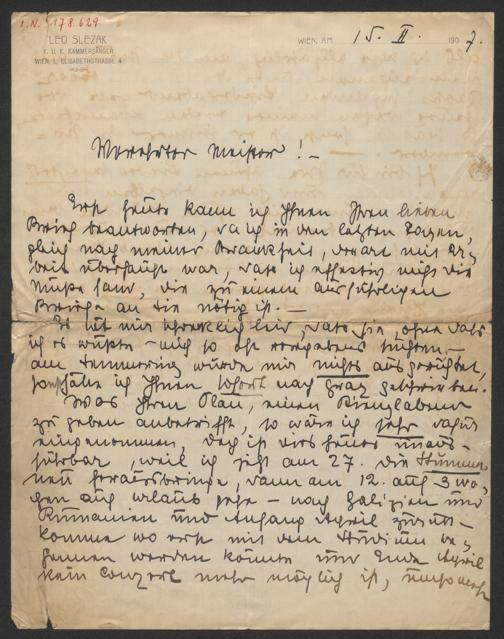 I.N. 178.629
LEO SLEZAK
K. U. K. KAMMERSÄNGER
WIEN, I., ELISABETHSTRASSE 4
WIEN, AM 15. II. 1907.
Verehrter Meister! –
Erst heute kann ich Ihnen Ihren lieben
Brief beantworten, da ich in den letzten Tagen,
gleich nach meiner Krankheit, derart mit Ar-
beit überhäuft war, dass ich effectiv nicht die
Muße fand, die zu einem ausführlichen
Briefe an Sie nötig ist. –
Es tut mir schrecklich leid, dass Sie, ohne dass
ich es wußte – mich so oft vergebens suchten –
am Semmering wurde mir nichts ausgerichtet,
sonst hätte ich Ihnen sofort nach Graz geschrieben.
Was Ihren Plan, einen Kienzlabend
zu geben anbetrifft, so wäre ich sehr dafür
eingenommen, doch ist dies heuer unaus-
führbar, weil ich jetzt am 27. die Stumme
neu herausbringe, dann am 12. auf 3 Wo-
chen auf Urlaub gehe – nach Galizien und
Rumänien und Anfang April zurück-
komme wo erst mit dem Studium be-
gonnen werden könnte und Ende April
kein Concert mehr möglich ist, umsomehr